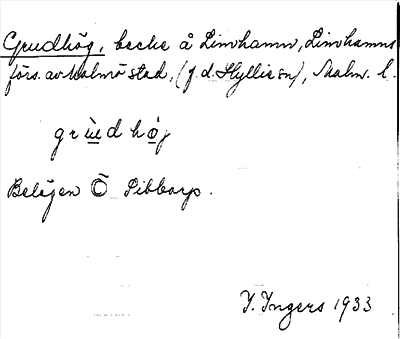 Grudhög, backe å Limhamn, Limhamns
förs. av Malmö stad, (f.d. Hyllie sn), Malm. l.
grùd høj
Belägen Ö Pibbarp.
I. Ingers 1933